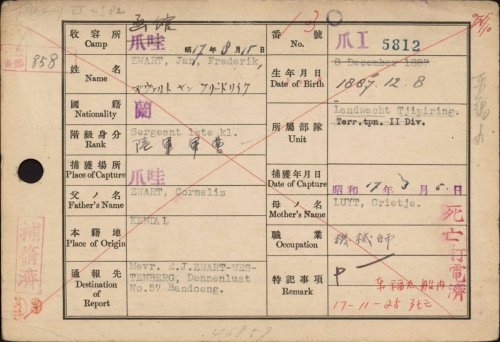 函館
收容所 Camp 爪哇 昭17年8月15日
番號 No. 爪I 5812
858
姓名 Name ZWART, Jan, Frederik,
生年月日 Date of Birth 8 December 1887
1887.12.8
國籍 Nationality 蘭
所屬部隊 Unit Landwacht Tjipiring.
Terr.tpn. II Div.
階級身分 Rank Sergeant 1ste kl.
陸軍軍曹
捕獲場所 Place of Capture 爪哇
捕獲年月日 Date of Capture 昭和17年3月5日
父ノ名 Father's Name ZWART, Cornelis
母ノ名 Mother's Name LUYT, Grietje.
本籍地 Place of Origin KENDAL
職業 Occupation 機械師
通報先 Destination of Report Mevr. E.J.ZWART-WES-
TENBERG, Dennenlust
No.57 Bandoeng.
特記事項 Remark P
17-11-25 死亡
死亡打電濟
補修濟
46859